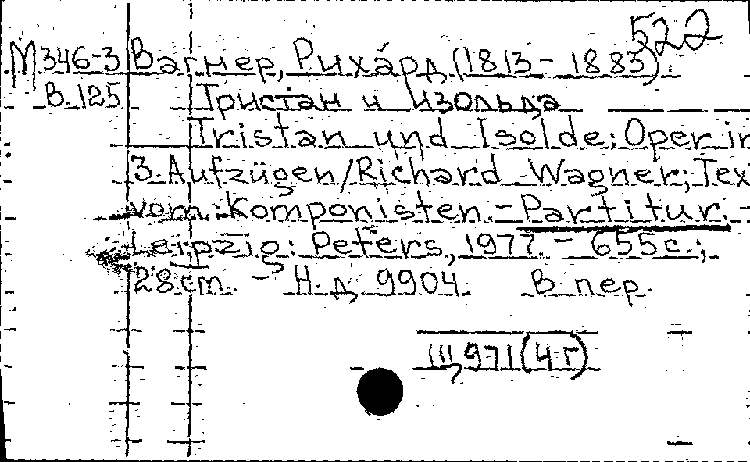 522
М346-3 Вагнер, Рихард (1813-1883).
В.125 Тристан и Изольда
Tristan und Isolde: Oper in
3. Aufzügen/Richard Wagner; Tex
vom Komponisten. - Partitur. -
Leipzig: Peters, 1977. - 655 с.;
28 cm. - Н.д. 9904. В пер.
Щ971(4Г)